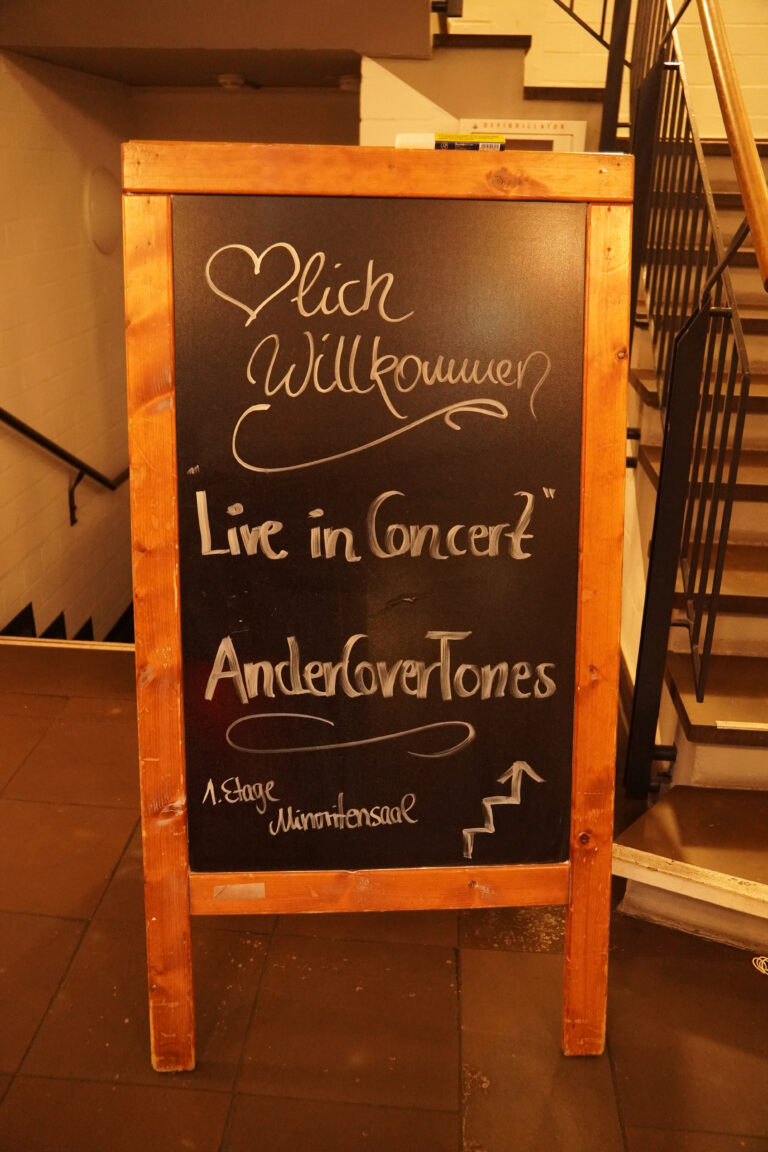 DEFIBRILLATOR
♡lich
Willkommen
"Live in Concert"
AnderCoverTones
1. Etage
Minoritensaal